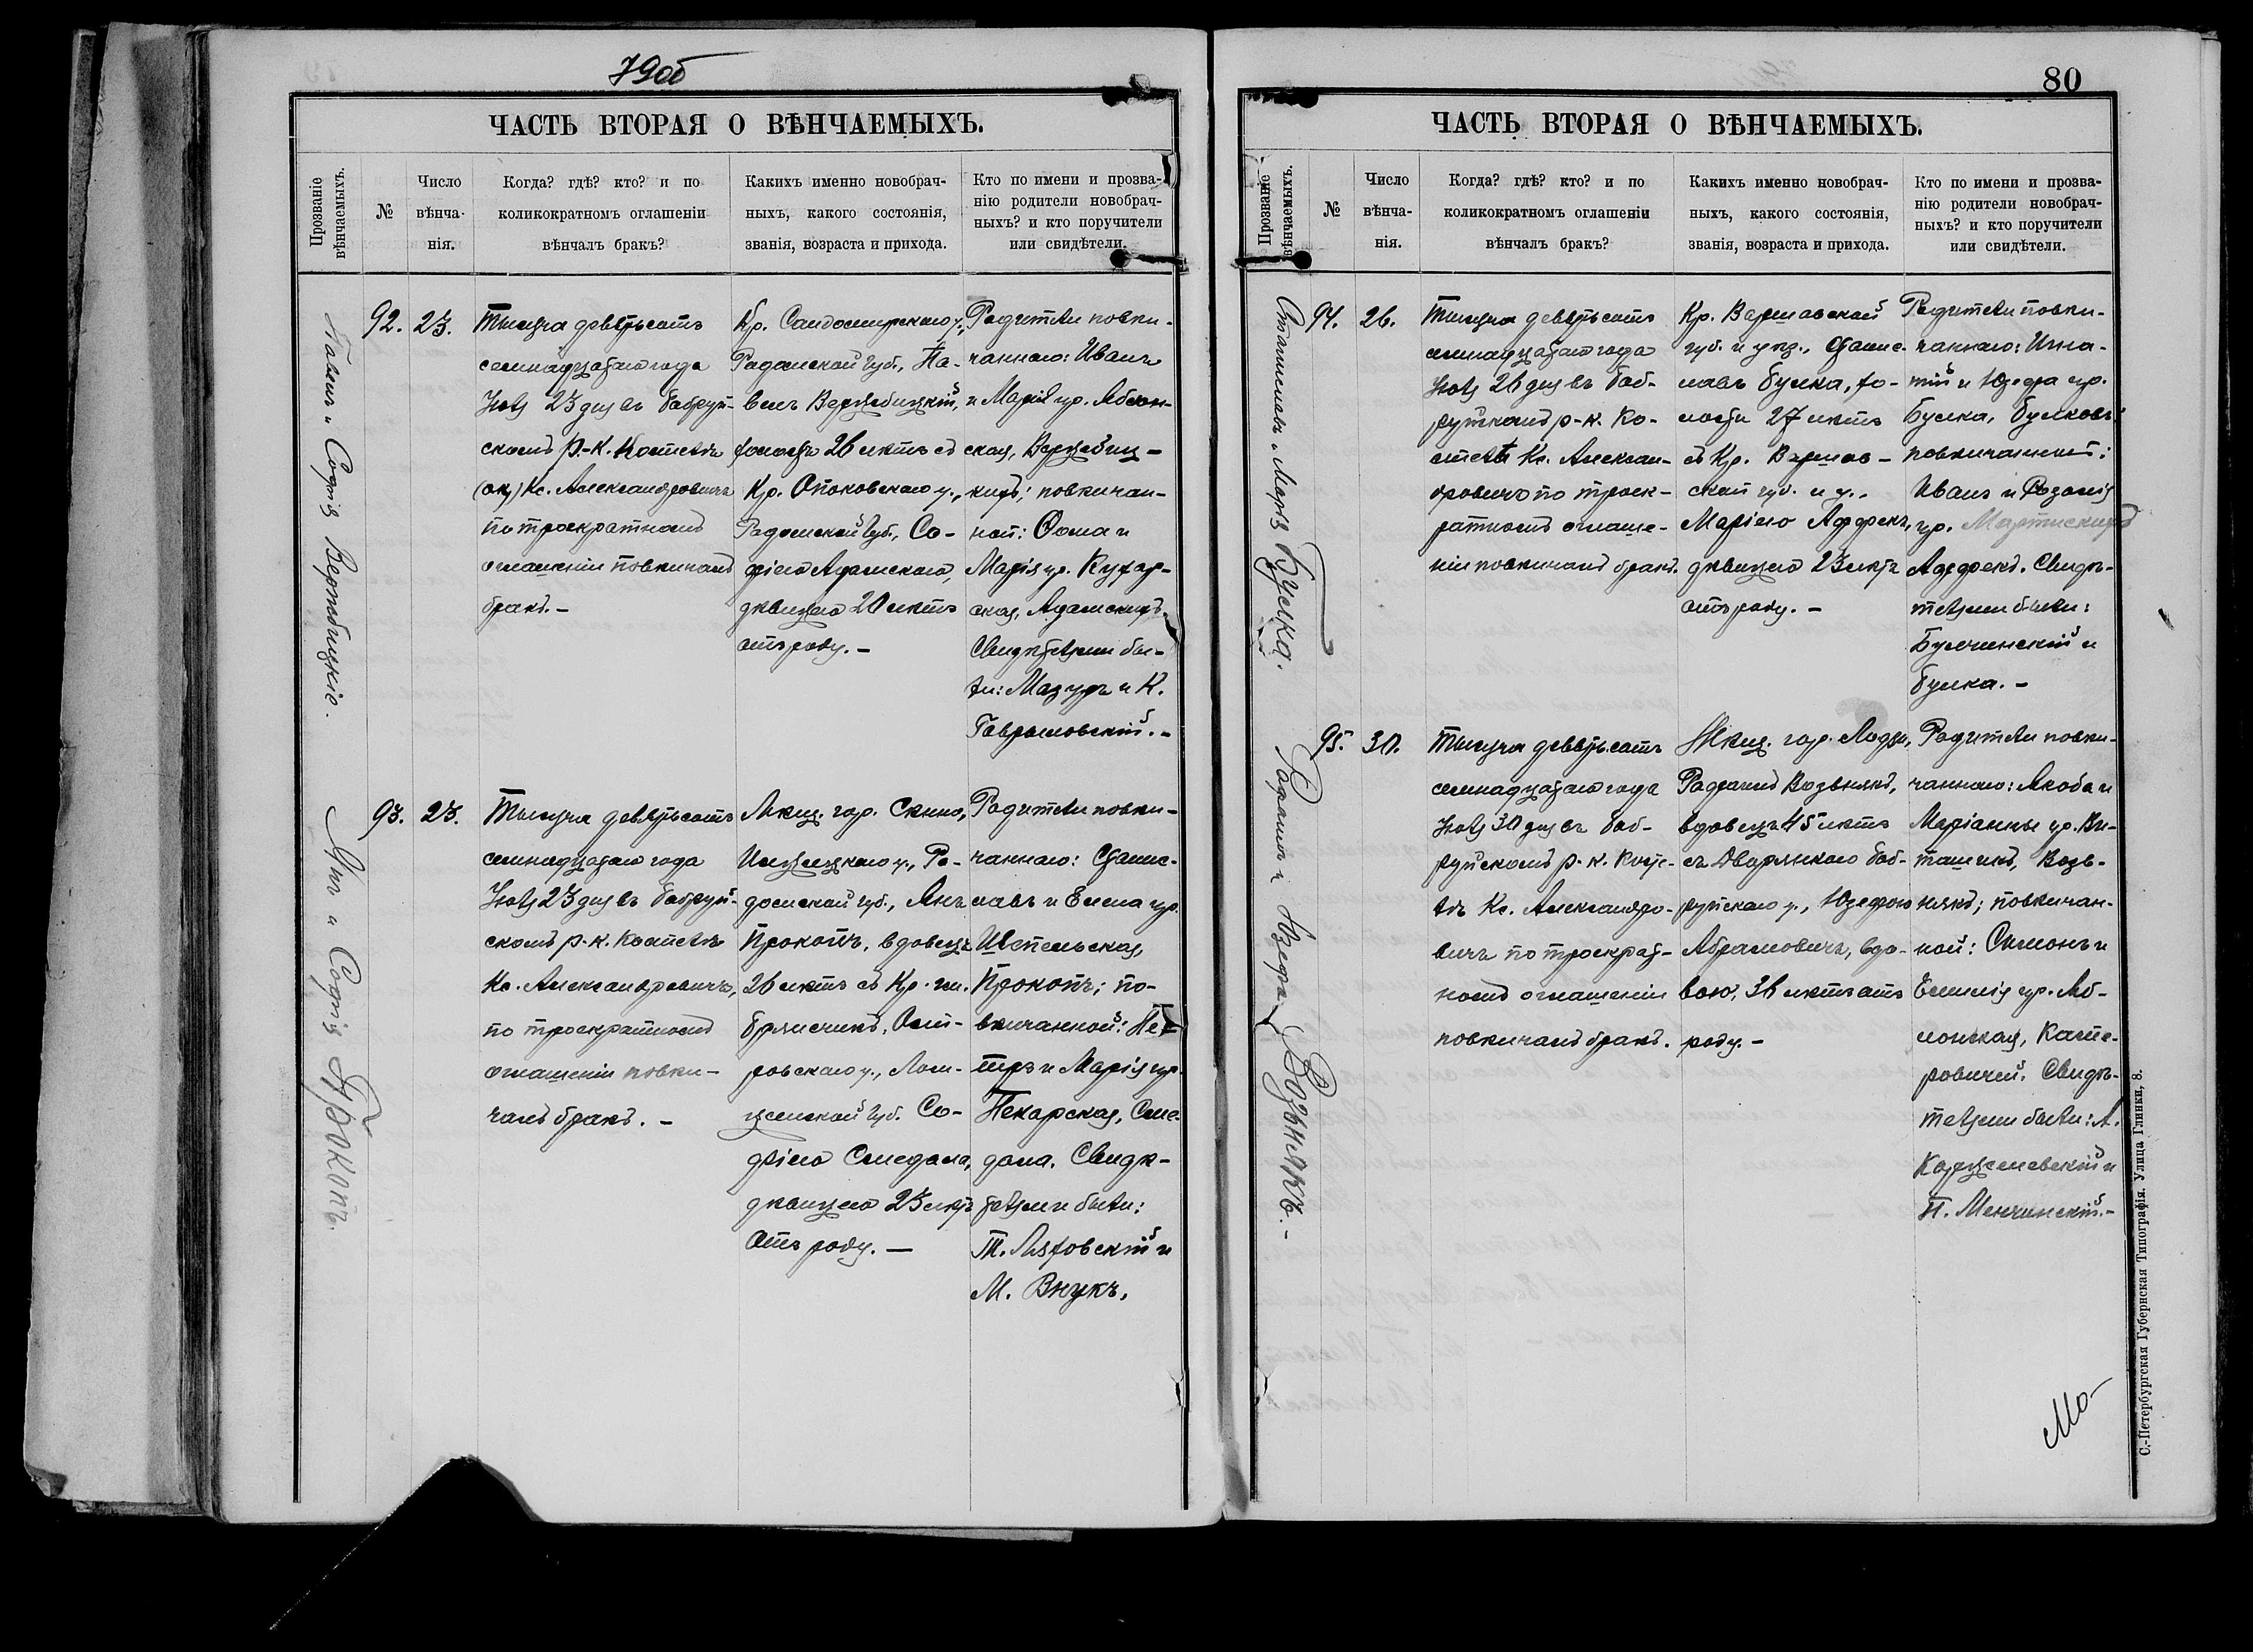 79об
ЧАСТЬ ВТОРАЯ О ВѢНЧАЕМЫХЪ.
Прозваніе
вѣнчаемыхъ.
№
Число
вѣнча-
нія.
Когда? гдѣ? кто? и по
коликократномъ оглашеніи
вѣнчалъ бракъ?
Какихъ именно новобрач-
ныхъ, какого состоянія,
званія, возраста и прихода.
Кто по имени и прозва-
нію родители новобрач-
ныхъ? и кто поручители
или свидѣтели.
и Софія Вержбицкіе.
92. 23.
Тысяча девятьсотъ
семнадцатаго года
Іюля 23 дня въ Бобруй-
скомъ р.-к. Костелѣ
Кс. Александровичъ
по троекратномъ
оглашеніи повѣнчалъ
бракъ.-
Кр. Сандомирскаго у.,
Радомской губ., Па-
велъ Вержбицкій,
холостъ 26 лѣтъ съ
Кр. Опоковскаго у.,
Радомской губ., Со-
фіею Адамскою,
дѣвицею 20 лѣтъ
отъ роду.-
Родители повѣн-
чаннаго: Иванъ
и Марія ур. Яблон-
ская, Вержбиц-
кихъ; повѣнчан-
ной: Ѳома и
Марія ур. Кухар-
ская, Адамскихъ.
Свидѣтелями бы-
ли: Мазуръ и К.
Гавриловскій.-
Янъ и Софія Прокопъ.
93. 23.
Тысяча девятьсотъ
семнадцатаго года
Іюля 23 дня въ Бобруй-
скомъ р.-к. Костелѣ
Кс. Александровичъ,
по троекратномъ
оглашеніи повѣн-
чалъ бракъ.-
Мѣщ. гор. Сѣнно,
Илжецкаго у., Ра-
домской губ., Янъ
Прокопъ, вдовецъ
26 лѣтъ съ Кр. гм.
Ост-
ровскаго у., Лом-
жинской губ. Со-
фіею Смедала,
дѣвицею 23 лѣтъ
отъ роду.-
Родители повѣн-
чаннаго: Станис-
лавъ и Елена ур.
Прокопъ; по-
вѣнчанной: Пе-
тръ и Марія ур.
Пекарская, Сме-
дала. Свидѣ-
телями были:
Т. Ляховскій и
М. Внукъ.
80
ЧАСТЬ ВТОРАЯ О ВѢНЧАЕМЫХЪ.
Прозваніе
вѣнчаемыхъ.
№
Число
вѣнча-
нія.
Когда? гдѣ? кто? и по
коликократномъ оглашеніи
вѣнчалъ бракъ?
Какихъ именно новобрач-
ныхъ, какого состоянія,
званія, возраста и прихода.
Кто по имени и прозва-
нію родители новобрач-
ныхъ? и кто поручители
или свидѣтели.
Станиславъ и Марія Булка.
94. 26.
Тысяча девятьсотъ
семнадцатаго года
Іюля 26 дня въ Боб-
руйскомъ р.-к. Ко-
стелѣ Кс. Алексан-
дровичъ по троек-
ратномъ оглаше-
ніи повѣнчалъ бракъ.
Кр. Варшавской
губ. и уѣз., Станис-
лавъ Булка, хо-
лостъ 27 лѣтъ
съ Кр. Варшав-
ской губ. и у.,
Маріею
дѣвицею 23 лѣтъ
отъ роду.-
Родители повѣн-
чаннаго: Игна-
тій и Юзефа ур.
Булка, Булковъ;
повѣнчанной:
Иванъ и Розалія
ур.
Свидѣ-
телями были:
Булчинскій и
Булка.-
Рафаилъ и Юзефа Возьнякъ.-
95. 30.
Тысяча девятьсотъ
семнадцатаго года
Іюля 30 дня въ Боб-
руйскомъ р.-к. Косте-
лѣ Кс. Александро-
вичъ по троекрат-
номъ оглашеніи
повѣнчалъ бракъ.
Мѣщ. гор. Лодзи,
Рафаилъ Возьнякъ,
вдовецъ 45 лѣтъ
съ Дворянкою Боб-
руйскаго у., Юзефою
Абрамовичъ, вдо-
вою, 36 лѣтъ отъ
роду.-
Родители повѣн-
чаннаго: Якобъ и
Маріанны ур. Ви-
ташекъ, Возь-
някъ; повѣнчан-
ной: Симонъ и
Емилія ур. Яб-
лонская, Каспе-
ровичей. Свидѣ-
телями были: А.
Коржелевскій и
П. Менчинскій.-
С.-Петербургская Губернская Типографія. Улица Глинки, 8.